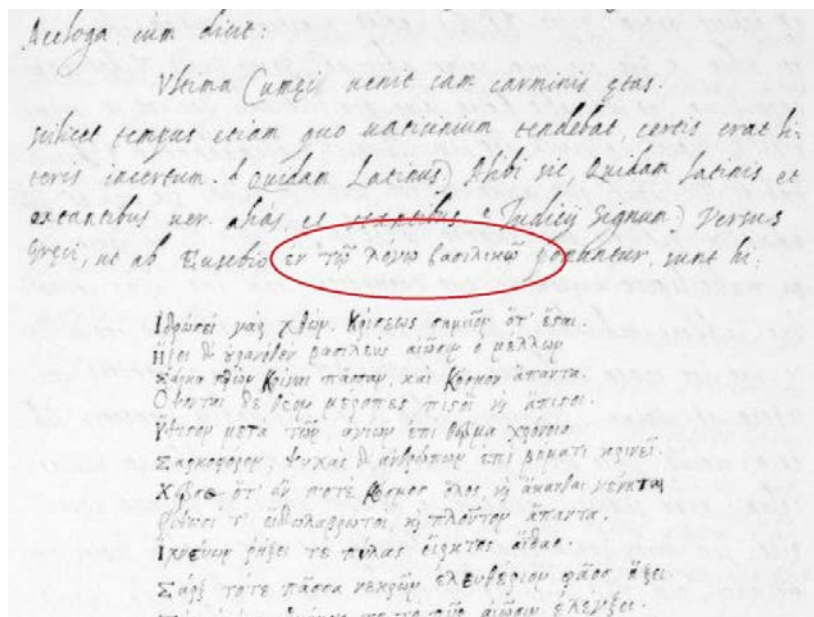 Aecloga cum dicit:
Vltima Cumęi uenit iam carminis ętas.
scilicet tempus etiam quo uaticinium tendebat, certis erat li-
teris incertum. d Quidam Latinus) Alibi sic, Quidam Latinis et
exeantibus uer. aliàs, et stantibus e Judicij Signum) Versus
Gręci, ut ab Eusebio ἐν τῶ λόγω βασιλικῶ ponuntur, sunt hi:
Ιδρώσει γὰρ χθὼν, Κρίσεως σημεῖον ὅτ' ἔσται.
Ηξει δ' οὐρανόθεν βασιλεὺς αἰώσιν ὁ μέλλων
Σάρκα κρῖναι πᾶσαν, καὶ Κόσμον ἅπαντα.
Οψονται δὲ θεὸν μέροπες πιστοὶ κὴ ἄπιστοι.
Υψιστον μετὰ τῶν ἁγίων ἐπὶ τέρμα χρόνοιο
Σαρκοφόρον, ψυχὰς δ' ἀνθρώπων ἐπὶ βήματι κρινεῖ.
Χέρσος ὅτ' ἄν ποτε Κόσμος ὅλος, κὴ ἄκανθαι γένηται
τ' εἴδωλα βροτοὶ, κὴ πλοῦτον ἅπαντα.
ῥήξει τε πύλας εἱρκτῆς ἀΐδαο.
Σὰρξ τότε πᾶσα νεκρῶν ἐλευθέριον φάος ἥξει
τὸ πῦρ αἰῶσιν ἐλέγξει.